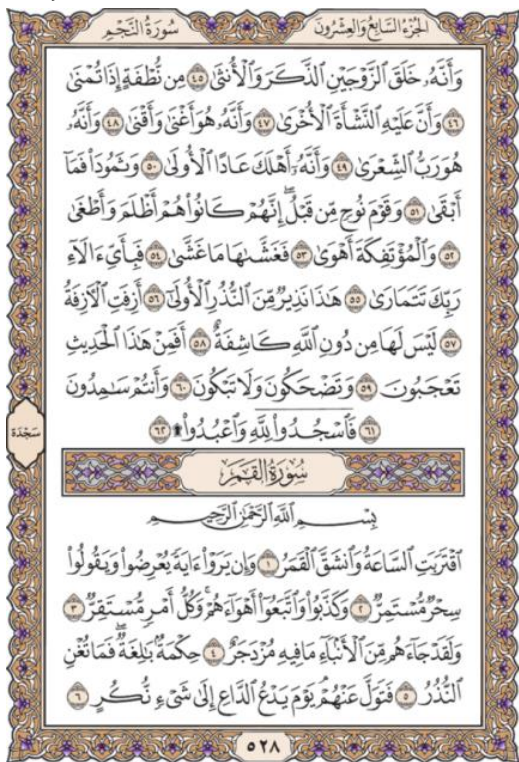 الجزء السابع والعشرون
سورة النجم
وَأَنَّهُۥ خَلَقَ ٱلزَّوۡجَيۡنِ ٱلذَّكَرَ وَٱلۡأُنثَىٰ ٤٥ مِن نُّطۡفَةٍ إِذَا تُمۡنَىٰ
٤٦ وَأَنَّ عَلَيۡهِ ٱلنَّشۡأَةَ ٱلۡأُخۡرَىٰ ٤٧ وَأَنَّهُۥ هُوَ أَغۡنَىٰ وَأَقۡنَىٰ ٤٨ وَأَنَّهُۥ
هُوَ رَبُّ ٱلشِّعۡرَىٰ ٤٩ وَأَنَّهُۥٓ أَهۡلَكَ عَادًا ٱلۡأُولَىٰ ٥٠ وَثَمُودَاْ فَمَآ
أَبۡقَىٰ ٥١ وَقَوۡمَ نُوحٖ مِّن قَبۡلُۖ إِنَّهُمۡ كَانُواْ هُمۡ أَظۡلَمَ وَأَطۡغَىٰ
٥٢ وَٱلۡمُؤۡتَفِكَةَ أَهۡوَىٰ ٥٣ فَغَشَّىٰهَا مَا غَشَّىٰ ٥٤ فَبِأَيِّ ءَالَآءِ
رَبِّكَ تَتَمَارَىٰ ٥٥ هَٰذَا نَذِيرٞ مِّنَ ٱلنُّذُرِ ٱلۡأُولَىٰٓ ٥٦ أَزِفَتِ ٱلۡأٓزِفَةُ
٥٧ لَيۡسَ لَهَا مِن دُونِ ٱللَّهِ كَاشِفَةٌ ٥٨ أَفَمِنۡ هَٰذَا ٱلۡحَدِيثِ
تَعۡجَبُونَ ٥٩ وَتَضۡحَكُونَ وَلَا تَبۡكُونَ ٦٠ وَأَنتُمۡ سَٰمِدُونَ
٦١ فَٱسۡجُدُواْۤ لِلَّهِۤ وَٱعۡبُدُواْ۩ ٦٢
سجدة
سورة القمر
بِسۡمِ ٱللَّهِ ٱلرَّحۡمَٰنِ ٱلرَّحِيمِ
ٱقۡتَرَبَتِ ٱلسَّاعَةُ وَٱنشَقَّ ٱلۡقَمَرُ ١ وَإِن يَرَوۡاْ ءَايَةٗ يُعۡرِضُواْ وَيَقُولُواْ
سِحۡرٞ مُّسۡتَمِرّٞ ٢ وَكَذَّبُواْ وَٱتَّبَعُوٓاْ أَهۡوَآءَهُمۡۚ وَكُلُّ أَمۡرٖ مُّسۡتَقِرّٞ ٣
وَلَقَدۡ جَآءَهُم مِّنَ ٱلۡأَنۢبَآءِ مَا فِيهِ مُزۡدَجَرٌ ٤ حِكۡمَةُۢ بَٰلِغَةٞۖ فَمَا تُغۡنِ
ٱلنُّذُرُ ٥ فَتَوَلَّ عَنۡهُمۡۘ يَوۡمَ يَدۡعُ ٱلدَّاعِ إِلَىٰ شَيۡءٖ نُّكُرٍ ٦
٥٢٨